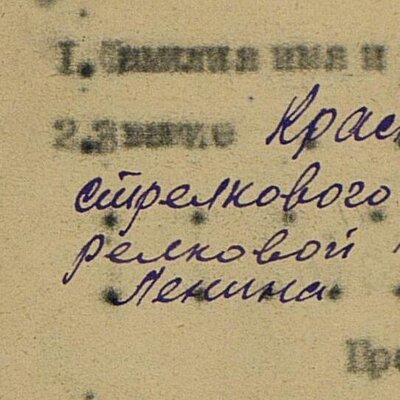 1. Фамилия имя и
2. Звание Крас
стрелкового
релковой
Ленина
Пре